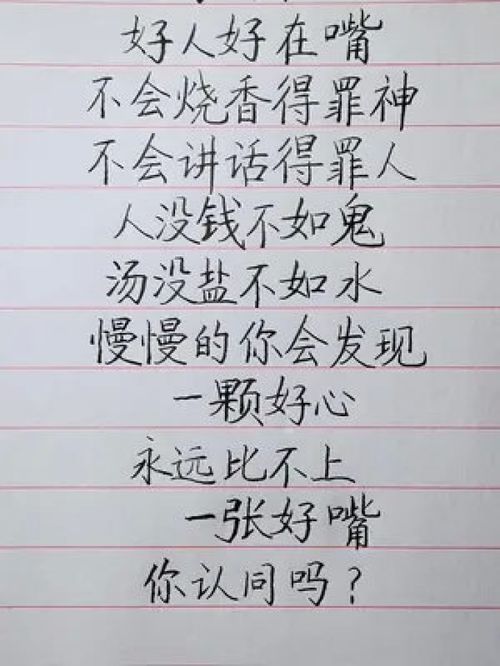 好人好在嘴
不会烧香得罪神
不会讲话得罪人
人没钱不如鬼
汤没盐不如水
慢慢的你会发现
一颗好心
永远比不上
一张好嘴
你认同吗？